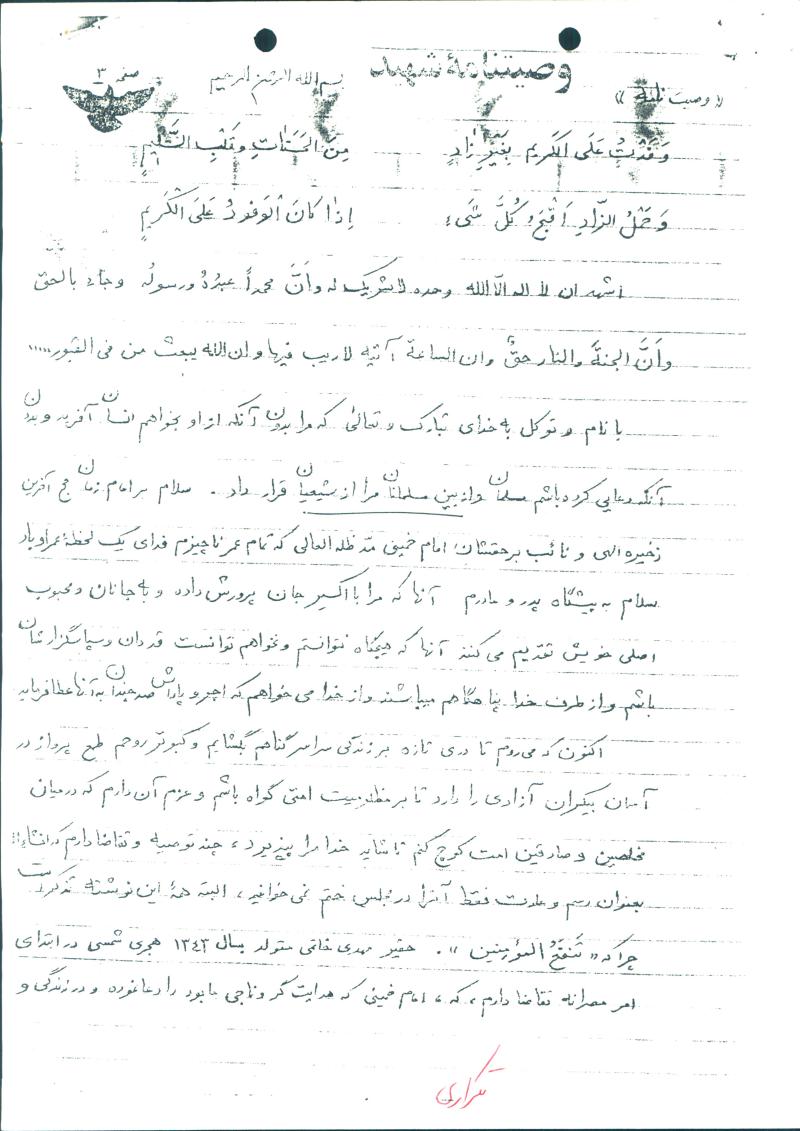 وصیتنامهٔ شهید
صفحه ۳
بسم الله الرحمن الرحیم
«وصیت نامه»
وَفَدْتُ عَلَی الکَریمِ بِغَیْرِ زادٍ مِنَ الحَسَناتِ وَ قَلْبِ السَّلیمِ
وَ حَمْلُ الزّادِ اَقْبَحُ کُلِّ شَیءٍ اِذا کانَ الوَفودُ عَلَی الْکَریمِ
اشهد ان لا اله الّا الله وحده لا شریک له و اَنَّ محمداً عبدُهُ و رسولُه وجاء بالحق
و اَنَّ الجنةَ والنار حقٌ وان الساعة آتیه لاریب فیها و ان الله یبعث من فی القبور.....
با نام و توکل به خدای تبارک و تعالی که مرا بدون آنکه از او بخواهم انسان آفرید و بدون
آنکه دعایی کرده باشم مسلمان و از بین مسلمانان مرا از شیعیان قرار داد. سلام بر امام زمان عج آخرین
ذخیره الهی و نائب برحقشان: امام خمینی مدّ ظله العالی که تمام عمر ناچیزم فدای یک لحظهٔ عمر او باد
سلام به پیشگاه پدر و مادرم آنها که مرا با اکسیر جان پرورش داده و به جانان و محبوب
اصلی خویش تقدیم می کنند آنها که هیچگاه نتوانستم و نخواهم توانست قدردان و سپاسگزارشان
باشم و از طرف خدا پناهگاهم میباشند و از خدا می خواهم که اجر و پاداش صد چندان به آنها عطا فرماید
اکنون که می روم تا دری تازه بر زندگی سراسر گناهم بگشایم و کبوتر روحم طمع پرواز در
آسمان بیکران آزادی را دارد تا بر مظلومیت امتی گواه باشم و عزم آن دارم که در میان
مخلصین و صادقین امت کوچ کنم تا شاید خدا مرا بپذیرد، چند توصیه و تقاضا دارم که انشاءالله
بعنوان رسم و عادت فقط آنرا در مجلس ختم نمی خوانید، البته همهٔ این نوشته تذکریست
چرا که «تَنفَعُ المؤمِنین». حقیر مهدی متولد بسال ۱۳۴۳ هجری شمسی در ابتدای
امر مصرانه تقاضا دارم، که، امام خمینی که هدایت گر و ناجی ما بود را دعا نموده و در زندگی و
تکراری